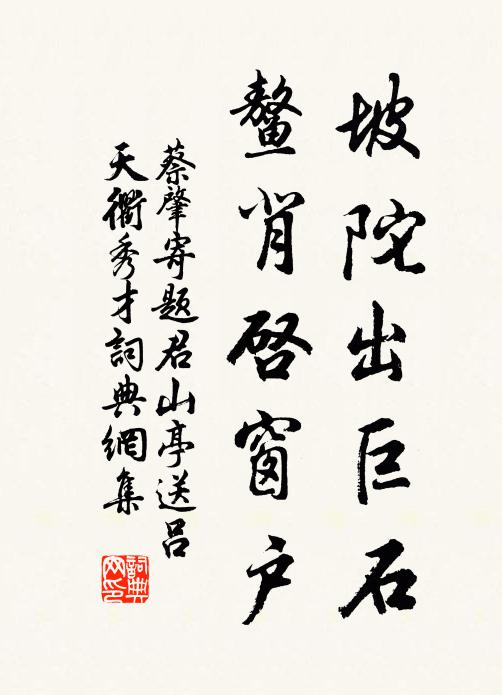 坡陀出巨石
鳌背啓窗户
蔡肇寄题君山亭送吕
天衢秀才詞典網集
詞典
网印